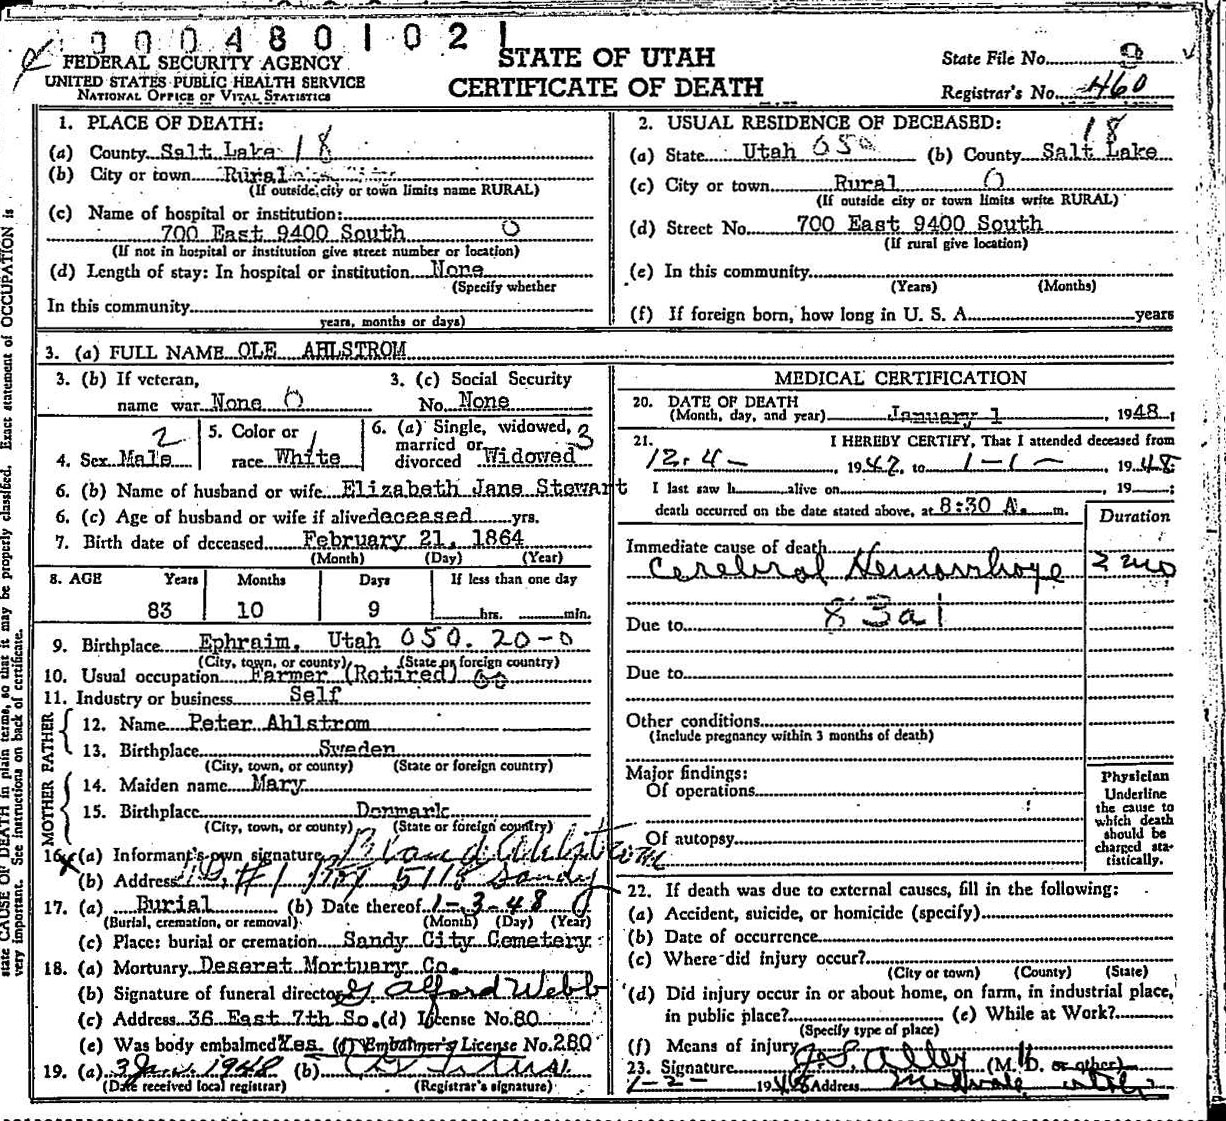 0 0 0 4 8 0 1 0 2 1
FEDERAL SECURITY AGENCY
UNITED STATES PUBLIC HEALTH SERVICE
NATIONAL OFFICE OF VITAL STATISTICS
STATE OF UTAH
CERTIFICATE OF DEATH
State File No. 8
Registrar's No. 460
1. PLACE OF DEATH:
(a) County Salt Lake 18
(b) City or town Rural
(If outside city or town limits name RURAL)
(c) Name of hospital or institution:
700 East 9400 South 0
(If not in hospital or institution give street number or location)
(d) Length of stay: In hospital or institution None
(Specify whether
In this community
years, months or days)
2. USUAL RESIDENCE OF DECEASED:
18
(a) State Utah 050 (b) County Salt Lake
(c) City or town Rural 0
(If outside city or town limits write RURAL)
(d) Street No. 700 East 9400 South
(If rural give location)
(e) In this community
(Years) (Months)
(f) If foreign born, how long in U. S. A. years
3. (a) FULL NAME OLE AHLSTROM
3. (b) If veteran,
name war None 0
3. (c) Social Security
No. None
4. Sex Male 2
5. Color or
race White 1
6. (a) Single, widowed,
married or
divorced Widowed 3
6. (b) Name of husband or wife Elizabeth Jane Stewart
6. (c) Age of husband or wife if alive deceased yrs.
7. Birth date of deceased February 21, 1864
(Month) (Day) (Year)
8. AGE Years Months Days If less than one day
83 10 9 hrs. min.
9. Birthplace Ephraim, Utah 050. 20-0
(City, town, or county) (State or foreign country)
10. Usual occupation Farmer (Retired)
11. Industry or business Self
FATHER
12. Name Peter Ahlstrom
13. Birthplace Sweden
(City, town, or county) (State or foreign country)
MOTHER
14. Maiden name Mary
15. Birthplace Denmark
(City, town, or county) (State or foreign country)
16. (a) Informant's own signature Ahlstrom
(b) Address #1 Sandy
17. (a) Burial (b) Date thereof 1-3-48
(Burial, cremation, or removal) (Month) (Day) (Year)
(c) Place: burial or cremation Sandy City Cemetery
18. (a) Mortuary Deseret Mortuary Co.
(b) Signature of funeral director Alford Webb
(c) Address 36 East 7th So. (d) License No. 80
(e) Was body embalmed Yes. (f) Embalmer's License No. 280
19. (a) 3 Jan. 1948 (b)
(Date received local registrar) (Registrar's signature)
MEDICAL CERTIFICATION
20. DATE OF DEATH
(Month, day, and year) January 1, 1948;
21. I HEREBY CERTIFY, That I attended deceased from
12-4-, 1947, to 1-1-, 1948
I last saw h alive on , 19 ;
death occurred on the date stated above, at 8:30 A. m.
Duration
Immediate cause of death
Cerebral Hemorrhage 2 mo
83a1
Due to
Due to
Other conditions
(Include pregnancy within 3 months of death)
Major findings:
Of operations
Of autopsy
Physician
Underline
the cause to
which death
should be
charged sta-
tistically.
22. If death was due to external causes, fill in the following:
(a) Accident, suicide, or homicide (specify)
(b) Date of occurrence
(c) Where did injury occur?
(City or town) (County) (State)
(d) Did injury occur in or about home, on farm, in industrial place,
in public place? (e) While at Work?
(Specify type of place)
(f) Means of injury
23. Signature J. S. Alley (M. D. or other)
1-2- 1948 Address Midvale Utah
state CAUSE OF DEATH in plain terms, so that it may be properly classified. Exact statement of OCCUPATION is
very important. See instructions on back of certificate.